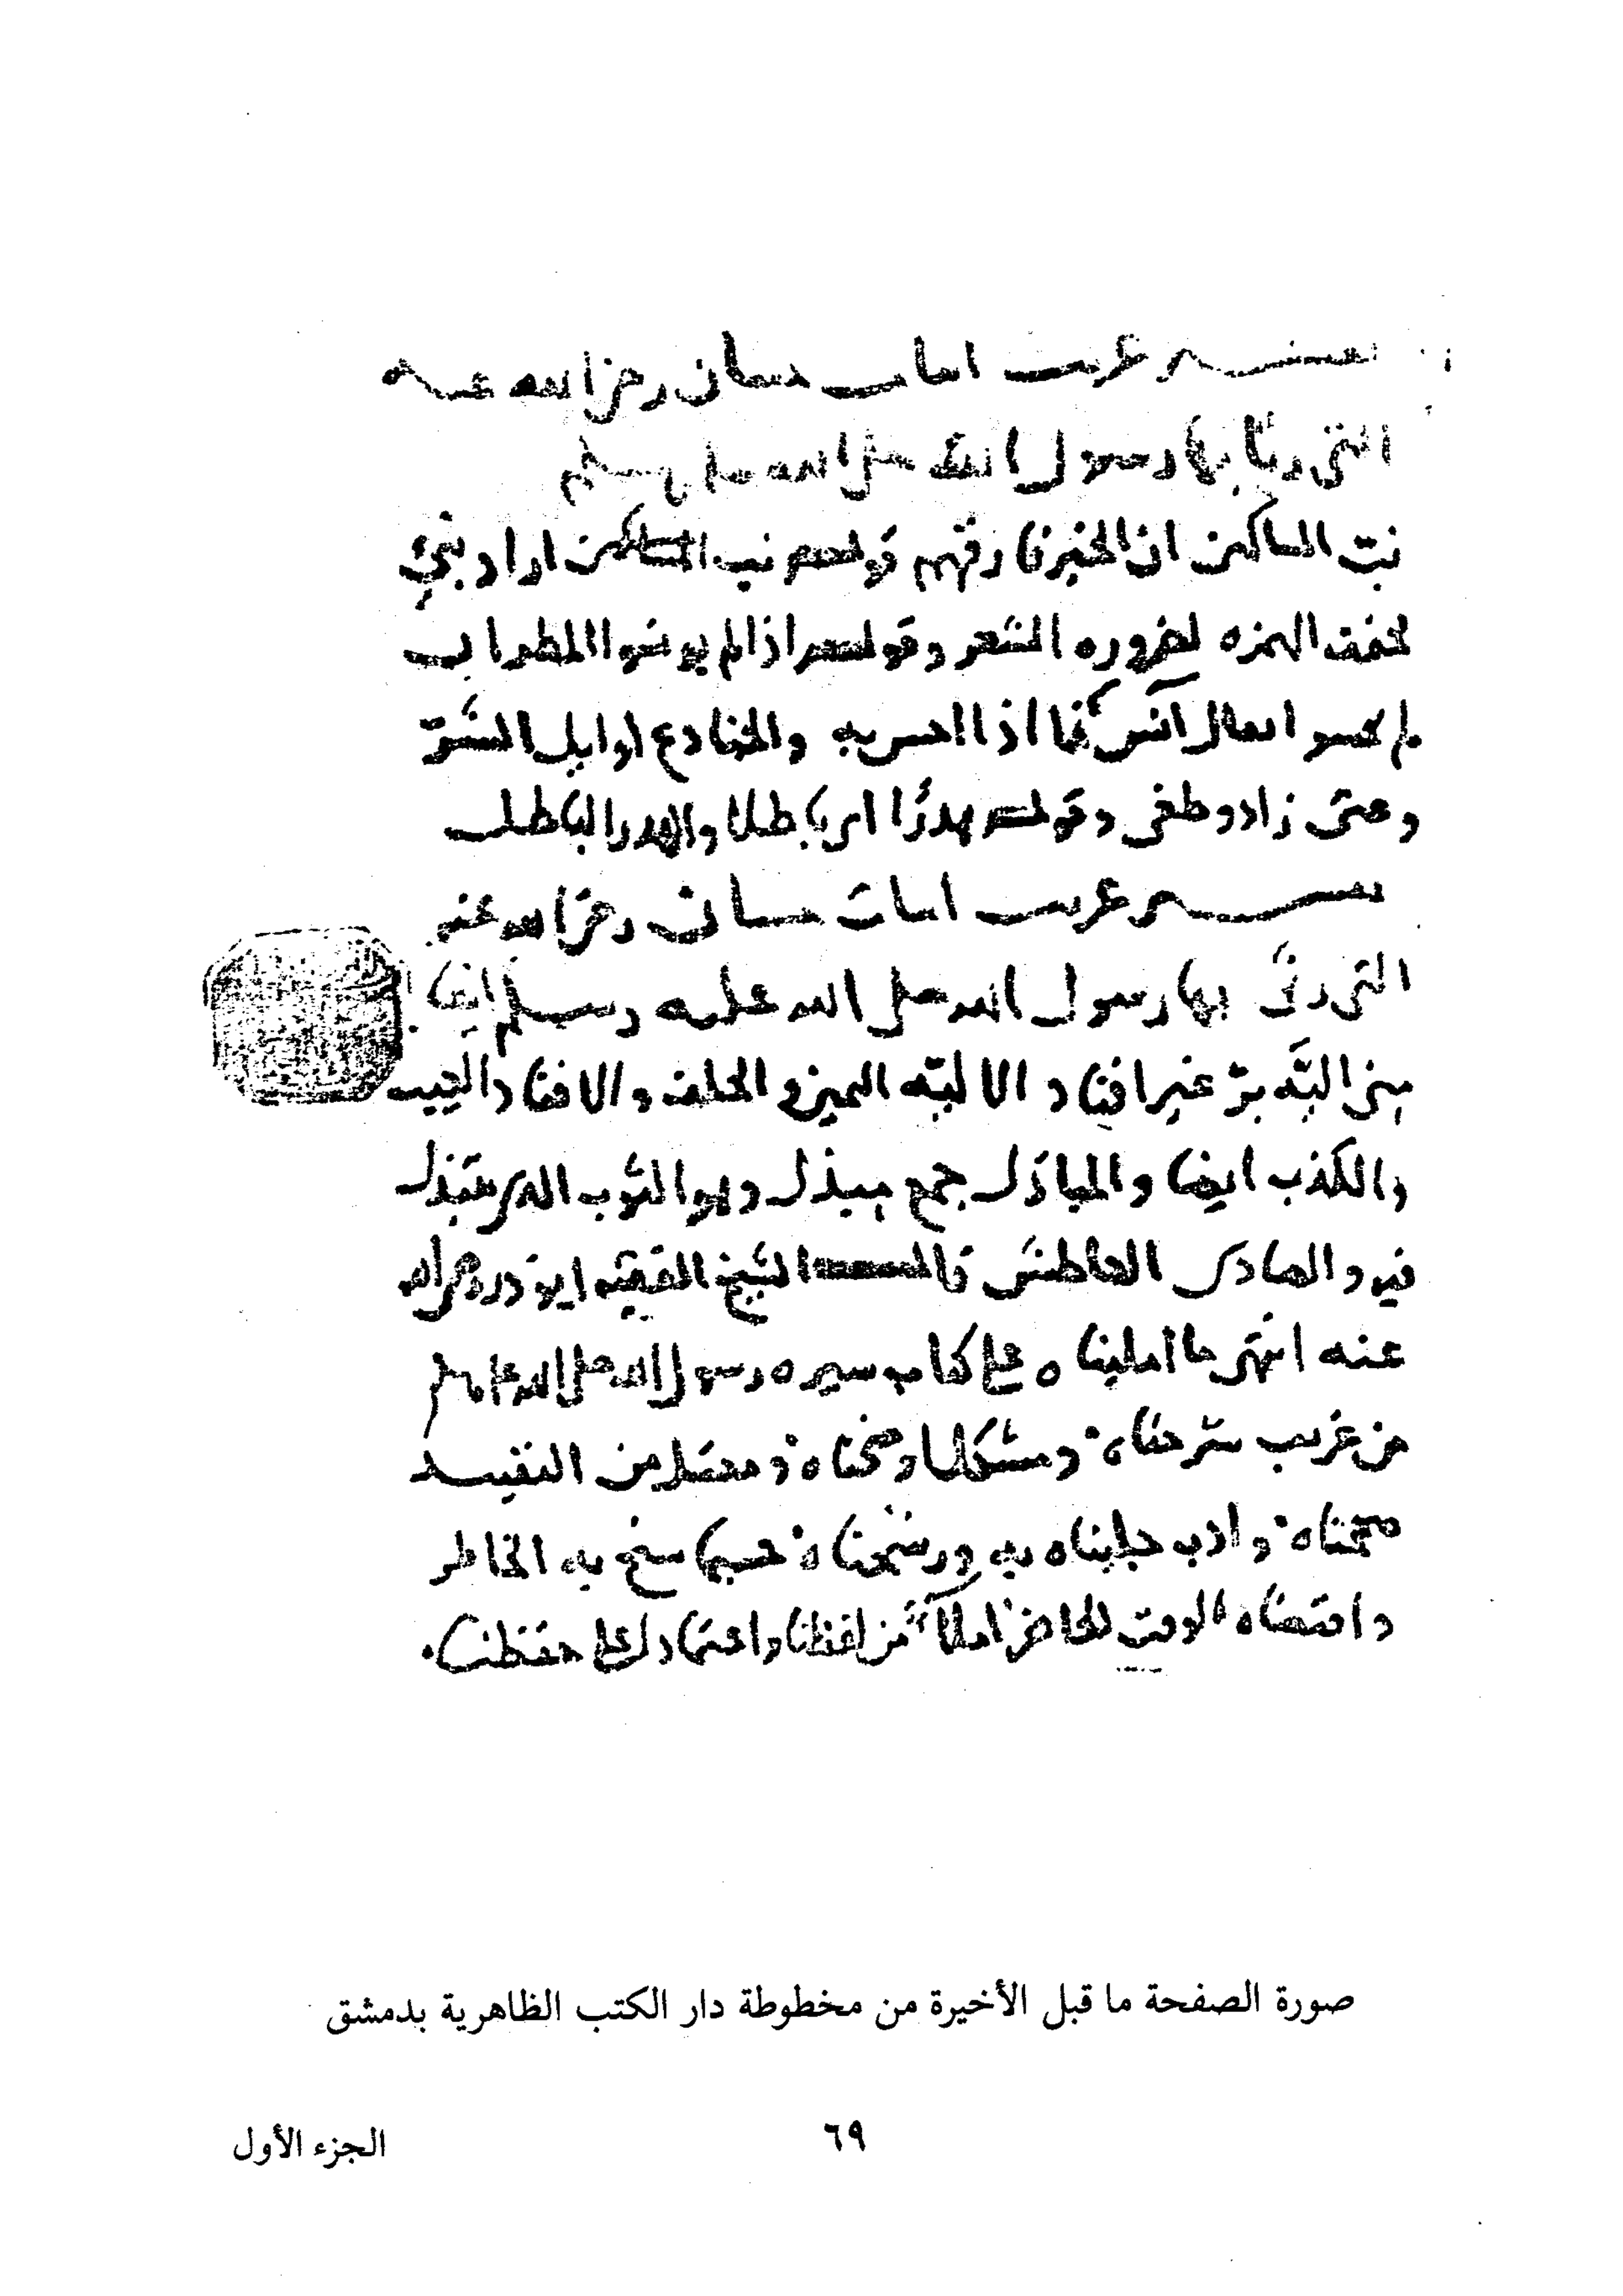 تفسير غريب ابيات حسان رضي الله عنه
التي رثا بها رسول الله صلى الله عليه وسلم
نبّ المساكين ان الخير فارقهم قوله نب المساكين اراد نبئ
فخفف الهمزه لضروره الشعر وقوله اذا لم يونسوا المطرا اي
لم يحسو ايقال آنس كذا اذا احس به والجنادع اوايل الشر
وعتى زاد وطغى وقوله هدرًا اي باطلا والهدر الباطل
تفسير غريب ابيات حسان رضي الله عنه
التي رثى بها رسول الله صلى الله عليه وسلم ايضا
مني اليّه برّ غير افناد الاليّه اليمين والحلف والافناد العيب
والكذب ايضا والمباذل جمع مبذل وهو الثوب الذي يبتذل
فيه والصادي العاطش قال الشيخ الفقيه ابو ذر رضي الله
عنه انتهى ما امليناه على كتاب سيره رسول الله صلى الله عليه وسلم
من غريب شرحناه ومشكل اوضحناه ومعتل من التقييد
صححناه وادب جلبناه به ورشحناه حسبما سنح به الخاطر
واقتضاه الوقت الحاضر املآً من لفظنا واعتمادا على حفظنا
صورة الصفحة ما قبل الأخيرة من مخطوطة دار الكتب الظاهرية بدمشق
٦٩
الجزء الأول